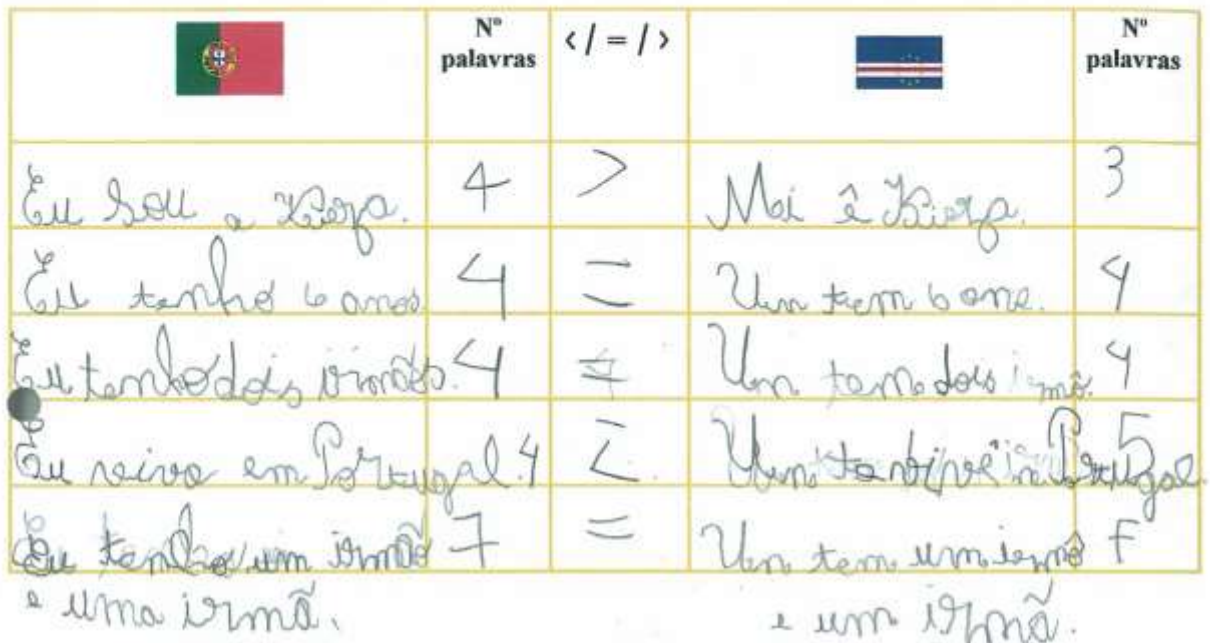 Nº palavras < / = / > Nº palavras
Eu sou a Kierza. 4 > Mi ê Kierza. 3
Eu tenho 6 anos. 4 = Um tem 6 one. 4
Eu tenho dois irmãos. 4 = Um tem dois irmõ. 4
Eu vivo em Portugal. 4 < Um ta vive in Portugal. 5
Eu tenho um irmão 7 = Um tem um irmõ 7
e uma irmã. e um irmã.